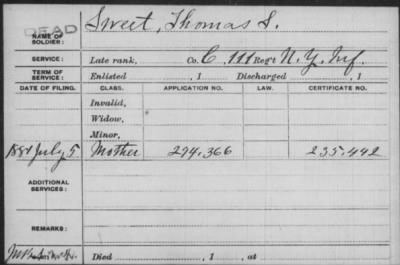 DEAD
NAME OF SOLDIER: Sweet, Thomas S.
SERVICE: Late rank, Co. C, 111 Reg't N. Y. Inf.
TERM OF SERVICE: Enlisted , 1 Discharged , 1
DATE OF FILING. CLASS. APPLICATION NO. LAW. CERTIFICATE NO.
Invalid,
Widow,
Minor,
1881 July 5 Mother 294,366 235.442
ADDITIONAL SERVICES:
REMARKS:
Died , 1 , at